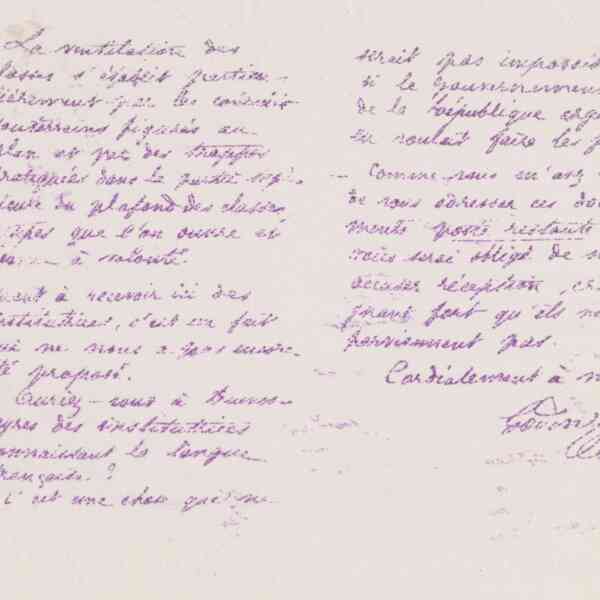 La ventilation des
classes s'établit particu-
lièrement par les conduits
souterrains figurés au
plan et par des trappes
pratiquées dans la partie supé-
rieure du plafond des classes
que l'on ouvre et
à volonté.
Quant à recevoir ici des
institutrices, c'est un fait
qui ne nous a pas encore
été proposé.
Auriez-vous à Buenos-
Ayres des institutrices
connaissant la langue
française ?
C'est une chose qui ne
serait pas impossib
si le gouvernement
de la République arge
en voulait faire les
Comme vous m'avez
de vous adresser ces do
ments poste restante
vous serai obligé de
accuser réception,
fort qu'ils n
parviennent pas.
Cordialement à